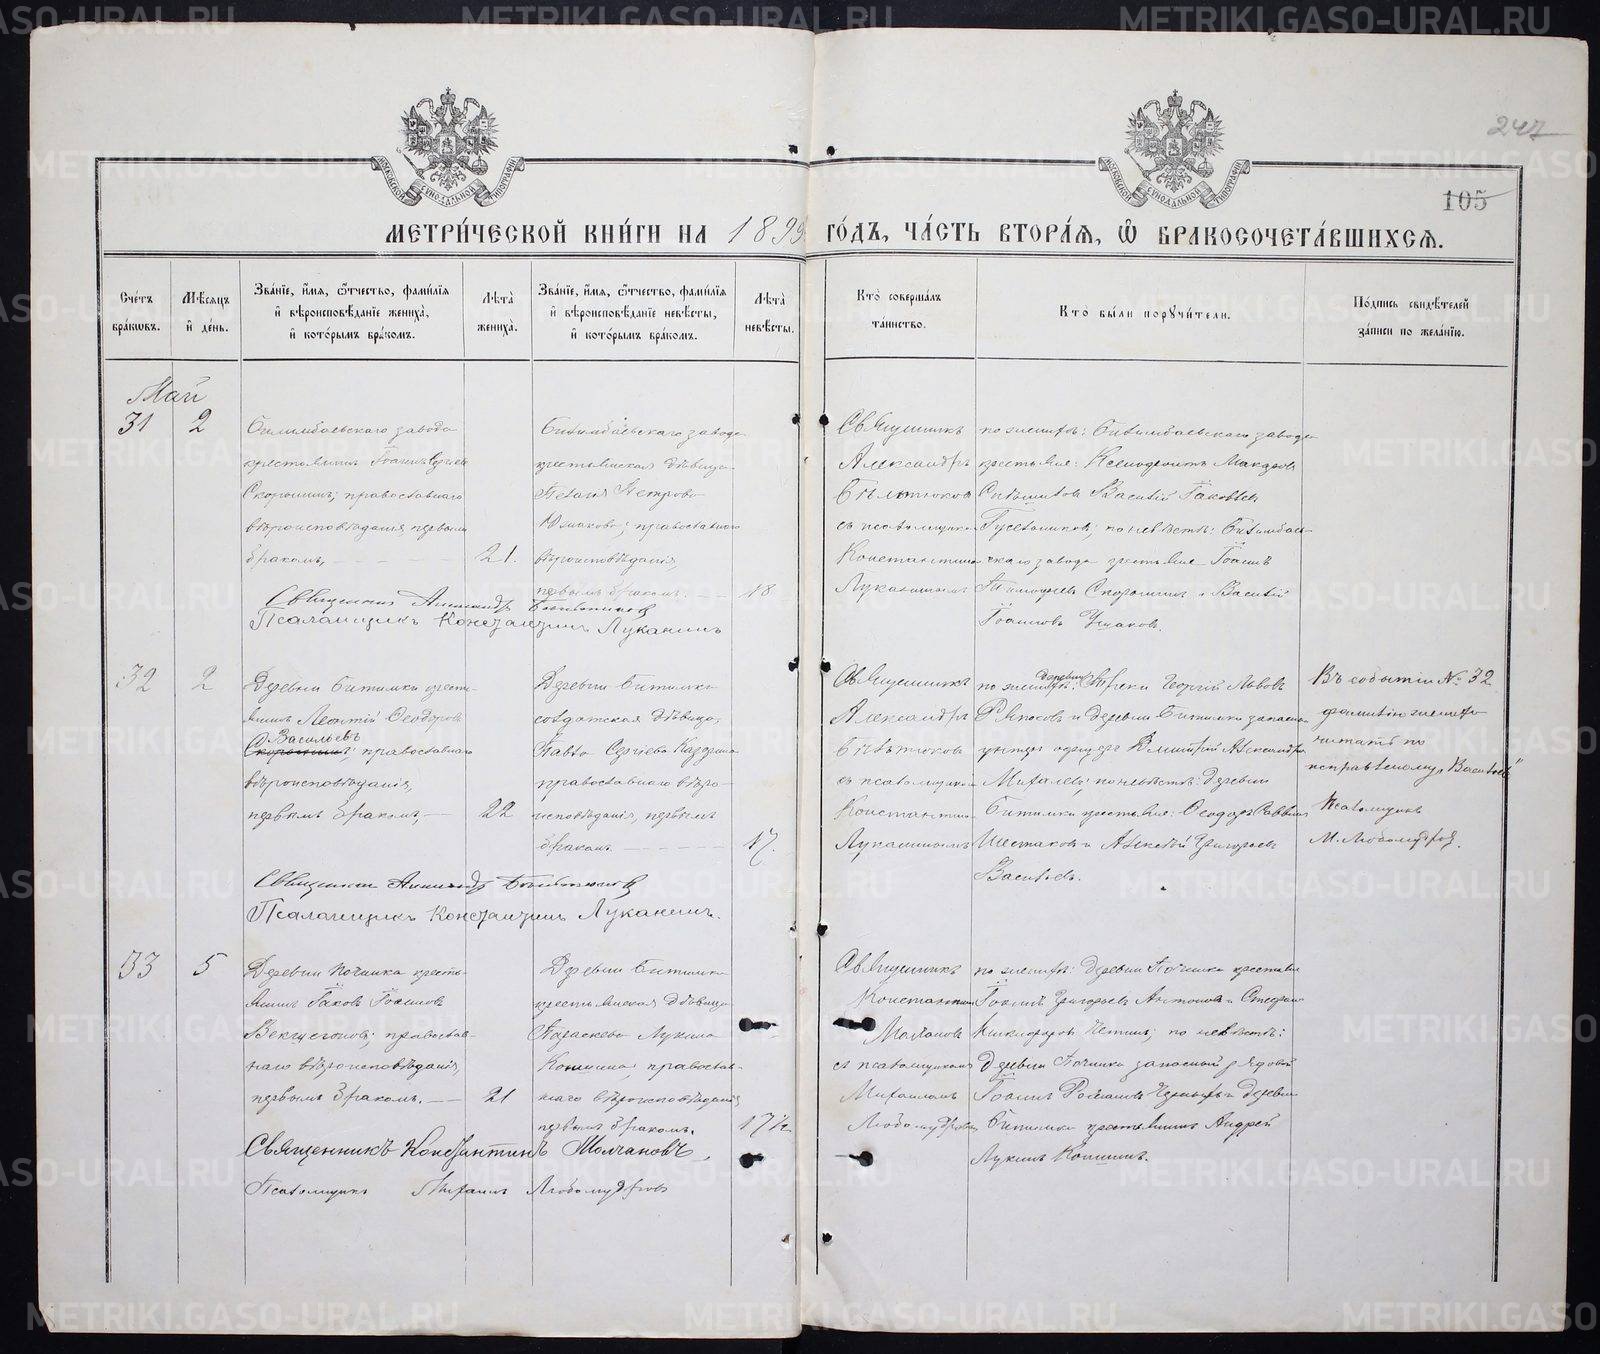 247
105
МЕТРИ́ЧЕСКОЙ КНИ́ГИ НА 1899 ГО́ДЪ, ЧА́СТЬ ВТОРА́Я, Ѡ БРАКОСОЧЕТА́ВШИХСЯ.
Сче́тъ бра́ковъ.
Мѣ́сяцъ и де́нь.
Зва́нїе, и́мя, ѻ҆́тчество, фами́лїя и҆ вѣроисповѣ́данїе жениха̀, и҆ кото́рымъ бра́комъ.
Лѣ́та жениха̀.
Зва́нїе, и́мя, ѻ҆́тчество, фами́лїя и҆ вѣроисповѣ́данїе невѣ́сты, и҆ кото́рымъ бра́комъ.
Лѣ́та невѣ́сты.
Кто̀ соверша́лъ та́инство.
Кто̀ бы́ли поручи́тели.
По́дпись свидѣ́телей за́писи по жела́нїю.
Май
31
2
Билимбаевскаго завода
крестьянинъ Іоаннъ Сергѣевъ
Скорынинъ; православнаго
вѣроисповѣданія, первымъ
бракомъ,
21.
Билимбаевскаго завода
крестьянская дѣвица
Пелагія Петрова
православнаго
вѣроисповѣданія,
первымъ бракомъ.
18
Священникъ
Александръ
съ псаломщикомъ
Константиномъ
Луканинымъ
по женихѣ: Билимбаевскаго завода
крестьяне: Ксенофонтъ Макаровъ
Василій Іаковлевъ
по невѣстѣ: Билимбаев-
скаго завода крестьяне Іоаннъ
Тимофеевъ Скорынинъ и Василій
Іоанновъ Ушаковъ.
Священникъ Александръ
Псаломщикъ Константинъ Луканинъ
32
2
Деревни Битимки кресть-
янинъ Леонтій Ѳеодоровъ
Васильевъ
православнаго
вѣроисповѣданія,
первымъ бракомъ,
22
Деревни Битимки
солдатская дѣвица,
Павла Сергіева
православнаго вѣро-
исповѣданія, первымъ
бракомъ.
17.
Священникъ
Александръ
съ псаломщикомъ
Константиномъ
Луканинымъ
по женихѣ: деревни Георгій Львовъ
и деревни Битимки запасный
Дмитрій Александровъ
по невѣстѣ: деревни
Битимки крестьяне: Ѳеодоръ Саввинъ
Шестаковъ и Алексѣй Григорьевъ
Васильевъ.
Въ событіи № 32
фамилію жениха
читать по
исправленому „Васильевъ“
Псаломщикъ
М. Любомудровъ.
Священникъ Александръ
Псаломщикъ Константинъ Луканинъ.
33
5
Деревни Починка кресть-
янинъ Іаковъ Іоанновъ
православ-
наго вѣроисповѣданія,
первымъ бракомъ.
21
Деревни Битимки
крестьянская дѣвица
Параскева Лукина
Кошкина, православ-
наго вѣроисповѣданія,
первымъ бракомъ.
17½.
Священникъ
Константинъ
Молчановъ
съ псаломщикомъ
Михаиломъ
Любомудровымъ
по женихѣ: деревни Починка крестьяне
Іоаннъ Григорьевъ Антоновъ и Стефанъ
Никифоровъ по невѣстѣ:
деревни Починка запасный рядовой
Іоаннъ Романовъ и деревни
Битимки крестьянинъ Андрей
Лукинъ Кошкинъ.
Священникъ Константинъ Молчановъ.
Псаломщикъ Михаилъ Любомудровъ
METRIKI.GASO-URAL.RU